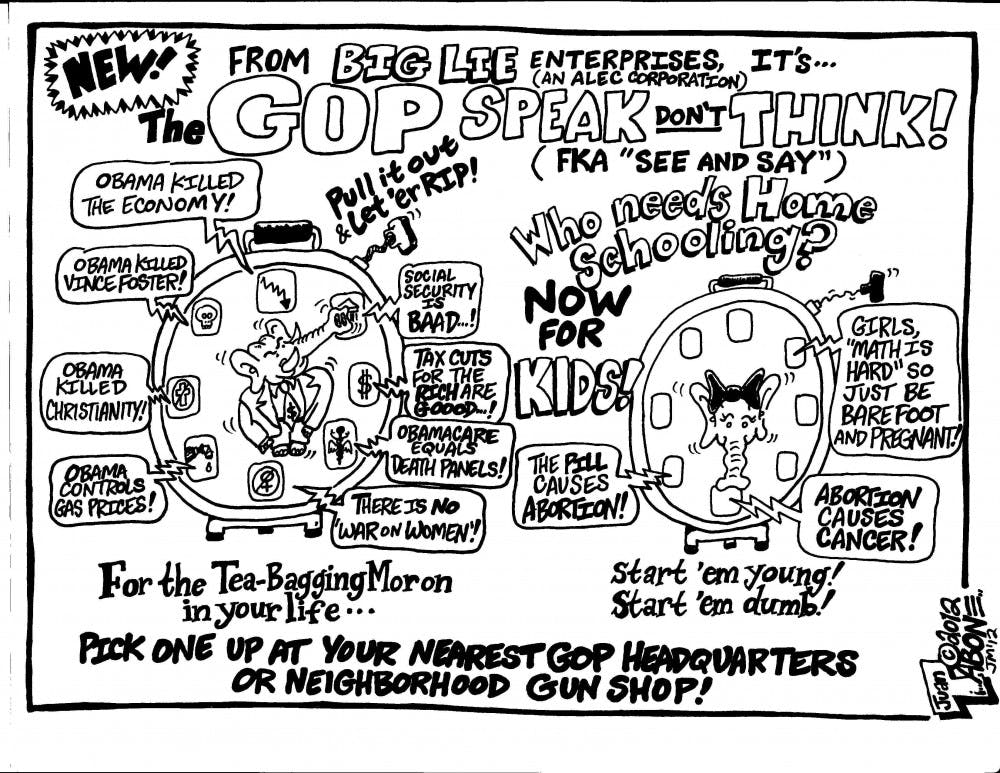 NEW!
FROM BIG LIE ENTERPRISES, IT'S...
(AN ALEC CORPORATION)
The GOP SPEAK DON'T THINK!
(FKA "SEE AND SAY")
Pull it out
& Let 'er RIP!
OBAMA KILLED
THE ECONOMY!
OBAMA KILLED
VINCE FOSTER!
OBAMA
KILLED
CHRISTIANITY!
OBAMA
CONTROLS
GAS PRICES!
SOCIAL
SECURITY
IS
BAAD...!
TAX CUTS
FOR THE
RICH ARE
GOOOD...!
OBAMACARE
EQUALS
DEATH PANELS!
THERE IS NO
"WAR ON WOMEN"!
$
$
For the Tea-Bagging Moron
in your life...
Who needs Home
Schooling?
NOW
FOR
KIDS!
GIRLS,
"MATH IS
HARD" SO
JUST BE
BAREFOOT
AND PREGNANT!
THE PILL
CAUSES
ABORTION!
ABORTION
CAUSES
CANCER!
Start 'em young!
Start 'em dumb!
PICK ONE UP AT YOUR NEAREST GOP HEADQUARTERS
OR NEIGHBORHOOD GUN SHOP!
Juan ©2012